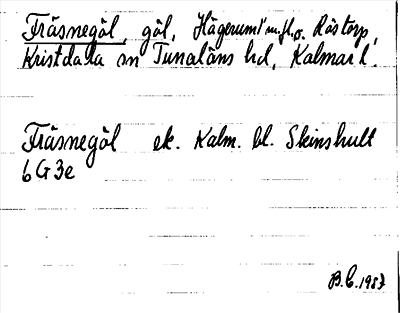 Fräsnegöl, göl, Hägerum m.fl. o. Råstorp,
Kristdala sn Tunaläns hd, Kalmar l.
Fräsnegöl ek. Kalm. bl. Skinshult
6G3e
B.C. 1987